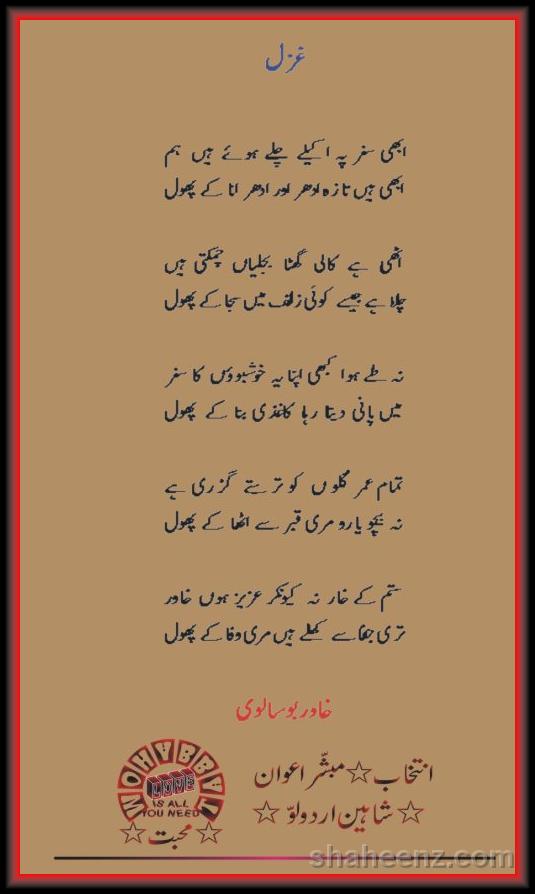 غزل
ابھی سفر پہ اکیلے چلے ہوئے ہیں ہم
ابھی ہیں تازہ ادھر اور ادھر انا کے پھول
اٹھی ہے کالی گھٹا بجلیاں چمکتی ہیں
چلا ہے جیسے کوئی زلف میں سجا کے پھول
نہ طے ہوا کبھی اپنا یہ خوشبوؤں کا سفر
میں پانی دیتا رہا کاغذی بنا کے پھول
تمام عمر گلوں کو ترستے گزری ہے
نہ بیچو یارو مری قبر سے اٹھا کے پھول
ستم کے خار نہ کیونکر عزیز ہوں خاور
تری جفا سے کھلے ہیں مری وفا کے پھول
خاور بوسالوی
انتخاب ☆ مبشّر اعوان
☆ شاہین اردو لوّ ☆
MOHYBBVM
LOVE
IS ALL
YOU NEED
☆ محبت ☆
shaheenz.com